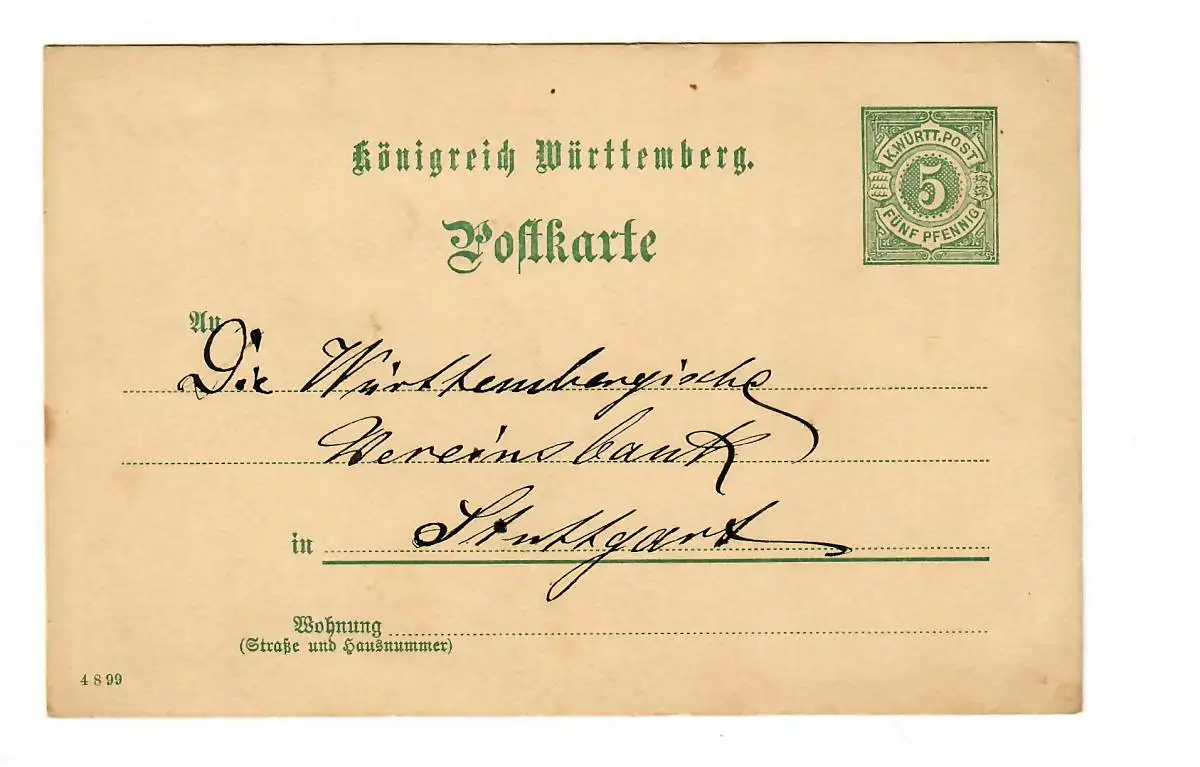 Königreich Württemberg.
K. WÜRTT. POST
5
FÜNF PFENNIG
Postkarte
An
Die Württembergische
Vereinsbank
in Stuttgart
Wohnung
(Straße und Hausnummer)
4 8 99